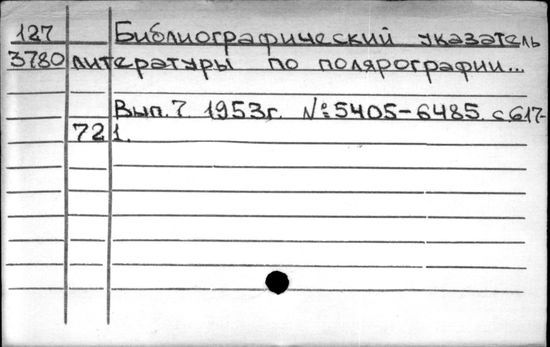 127 Библиографический указатель
3780 литературы по полярографии...
Вып. 7 1953г. №5405-6485. с 617-
721.